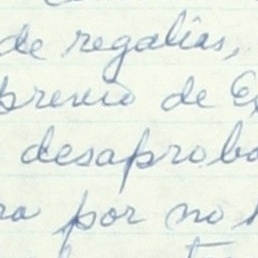 de regalías,
premio de
desaprob
por no